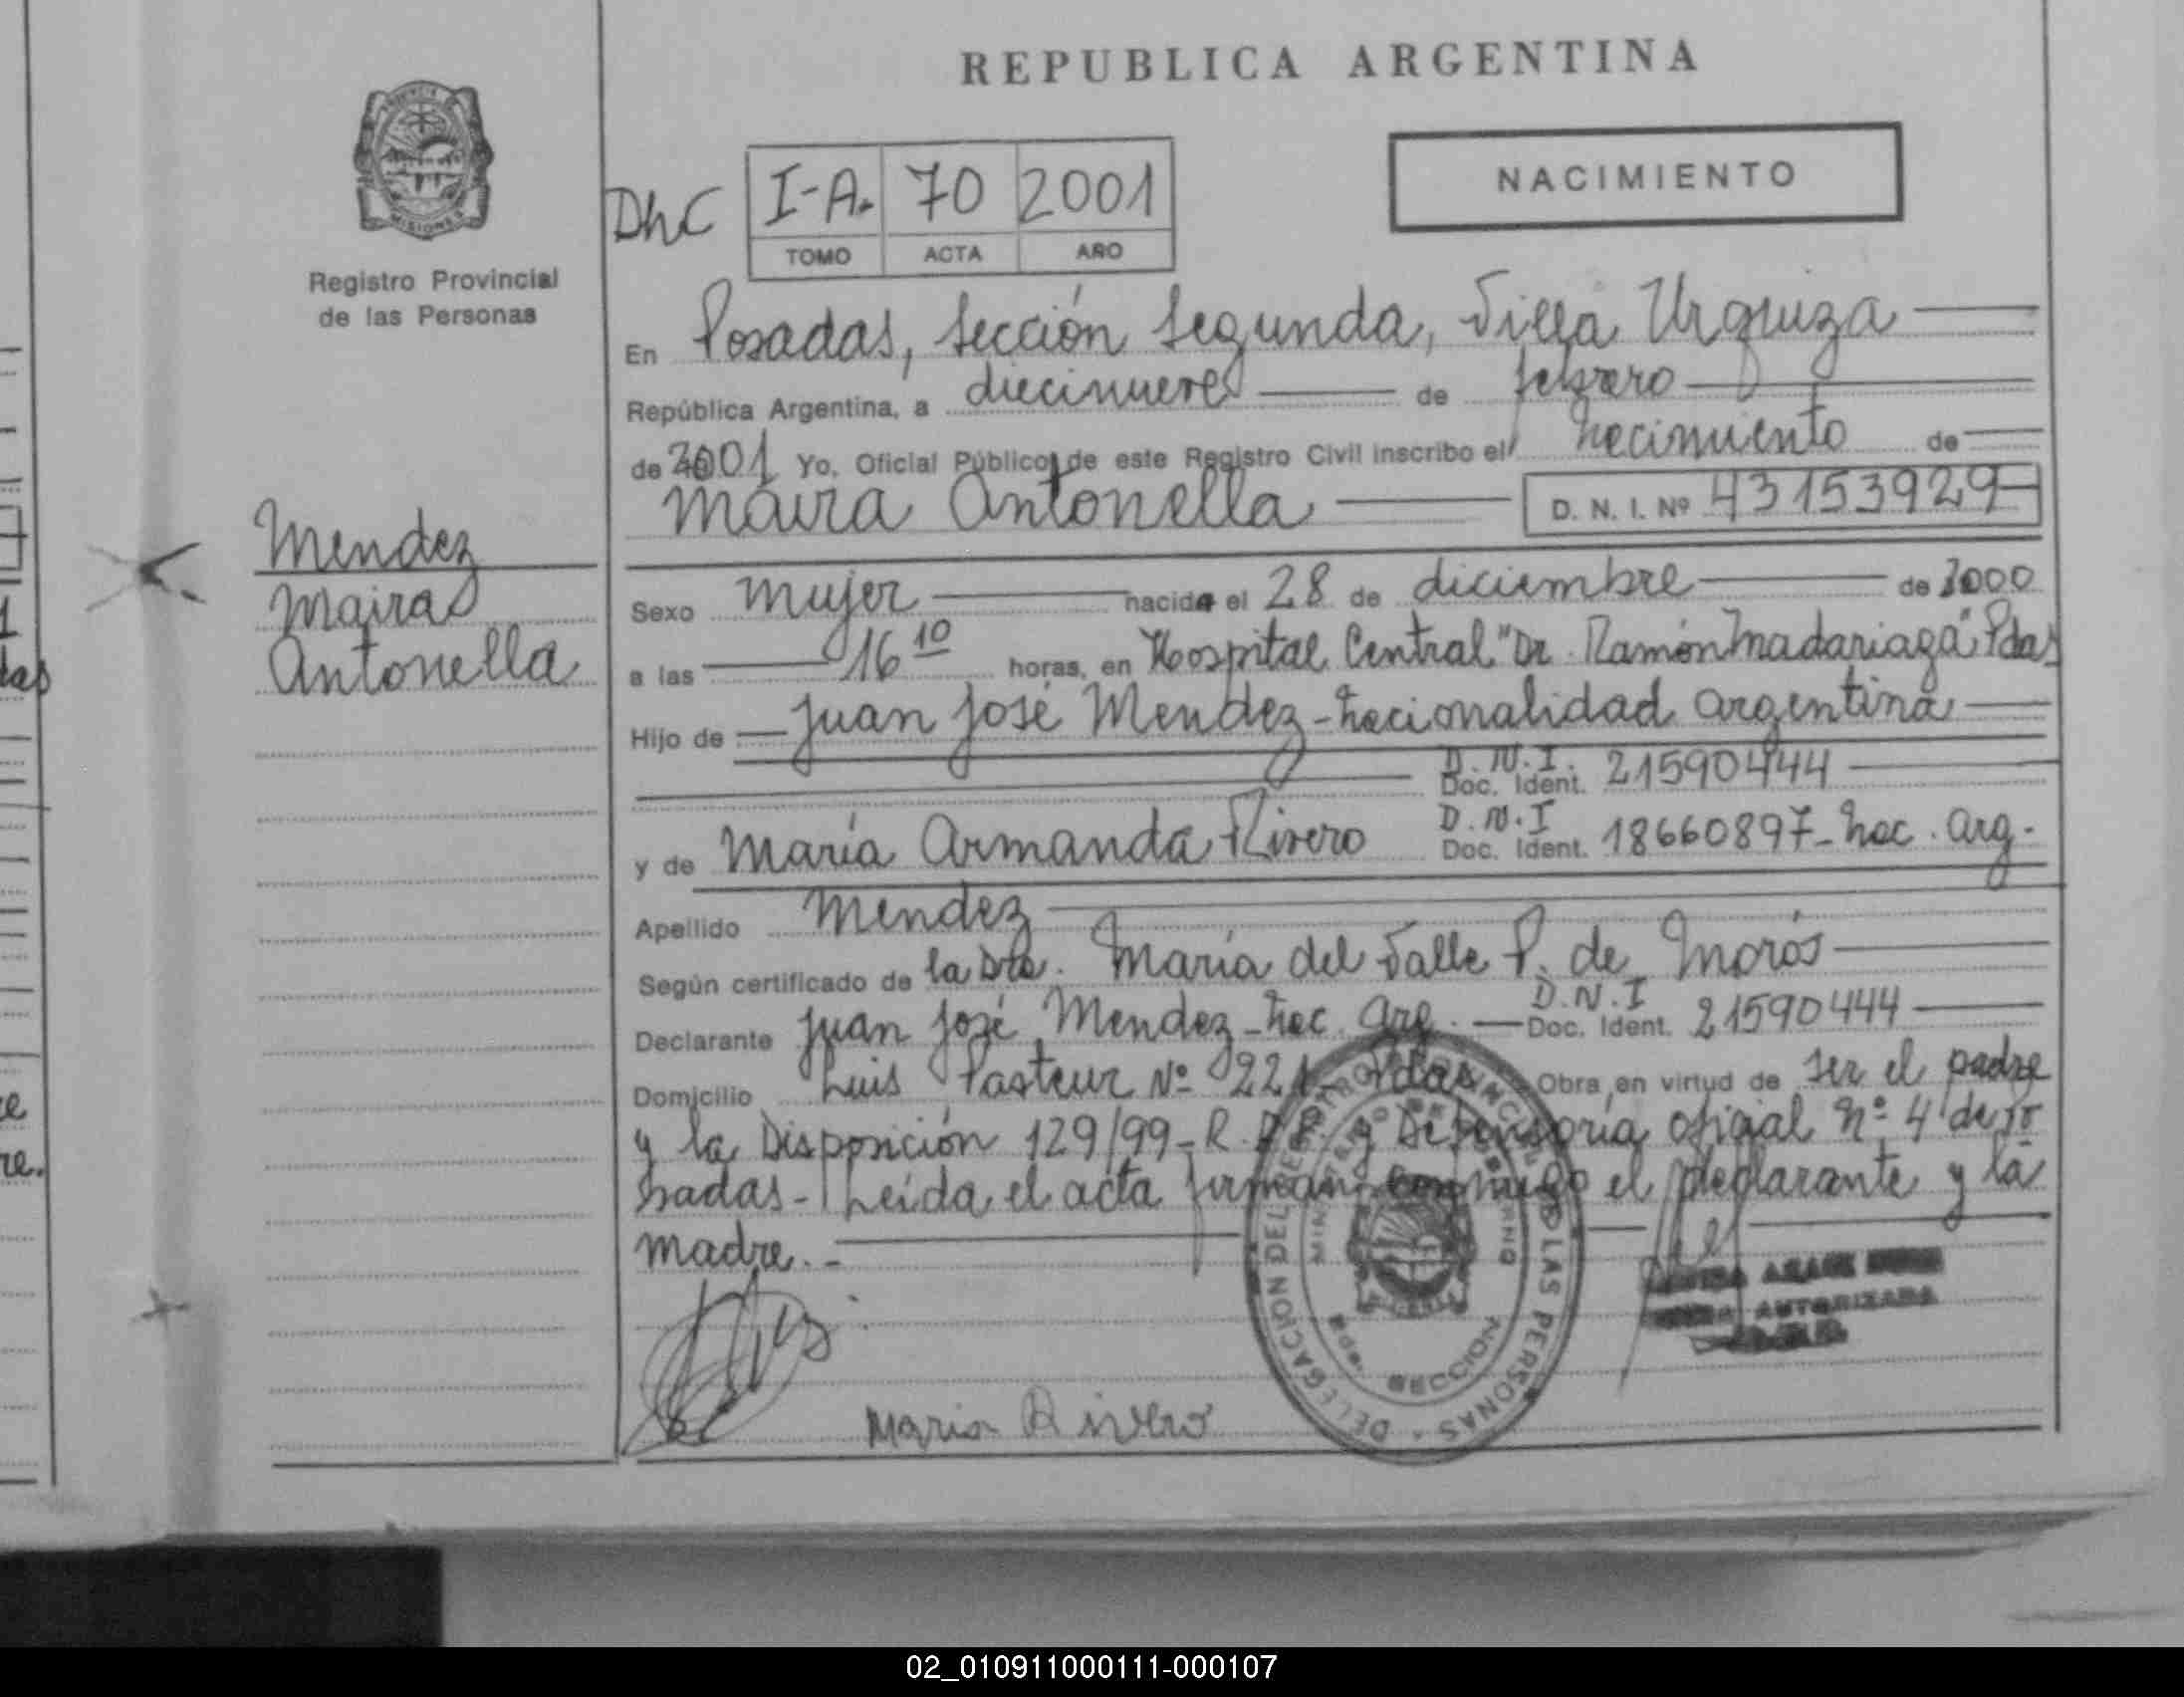 REPUBLICA ARGENTINA
NACIMIENTO
PROVINCIA DE
MISIONES
Registro Provincial
de las Personas
DhC
I-A. 70 2001
TOMO ACTA AÑO
En Posadas, Sección Segunda, Villa Urquiza
República Argentina, a diecinueve de febrero
de 2001 Yo, Oficial Público de este Registro Civil inscribo el nacimiento de
Maira Antonella D. N. I. Nº 43153929
Mendez
Maira
Antonella
Sexo mujer nacida el 28 de diciembre de 2000
a las 16 10 horas, en Hospital Central "Dr. Ramón Madariaga" Pdas
Hijo de Juan José Mendez - Nacionalidad argentina
D.N.I. Doc. Ident. 21590444
y de María Armanda Rivero D.N.I Doc. Ident. 18660897 - Nac. Arg.
Apellido Mendez
Según certificado de la Dra. María del Valle P. de Morós
Declarante Juan José Mendez - Nac. Arg. D.N.I Doc. Ident. 21590444
Domicilio Luis Pasteur Nº 221 - Pdas Obra en virtud de ser el padre
y la Disposición 129/99 - R.P.P. y Defensoría oficial Nº 4 de Po
sadas - Leída el acta firman conmigo el declarante y la
madre. -
Maria Rivero
DELEGACION DEL REGISTRO PROVINCIAL DE LAS PERSONAS
MINISTERIO DE GOBIERNO
2da. SECCION
AUTORIZADA
02_010911000111-000107